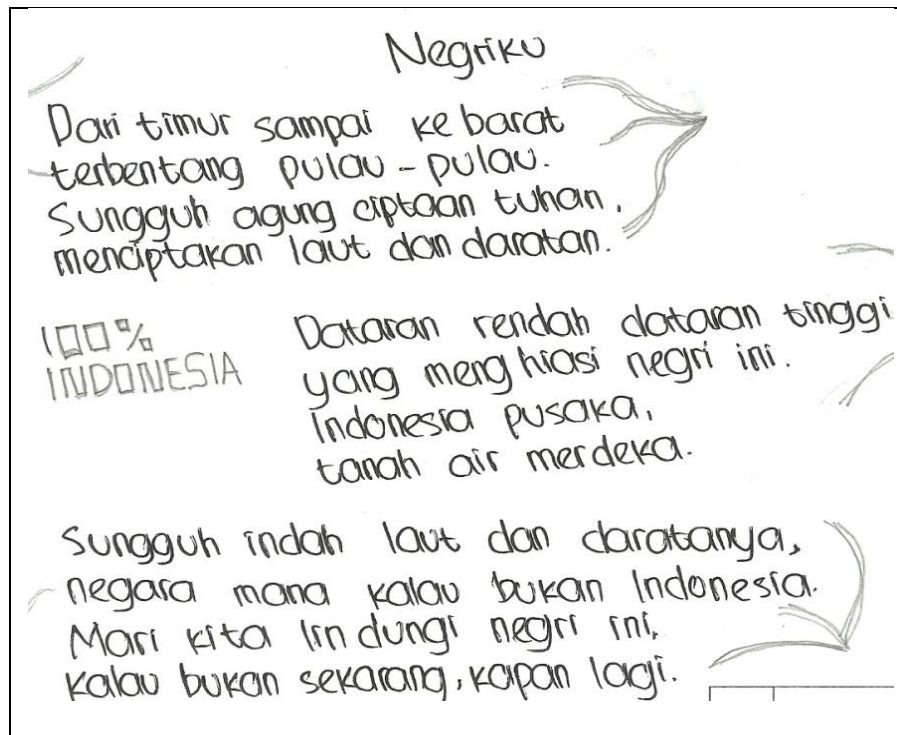 Negriku
Dari timur sampai ke barat
terbentang pulau-pulau.
Sungguh agung ciptaan tuhan,
menciptakan laut dan daratan.
100%
INDONESIA
Dataran rendah dataran tinggi
yang menghiasi negri ini.
Indonesia pusaka,
tanah air merdeka.
Sungguh indah laut dan daratanya,
negara mana kalau bukan Indonesia.
Mari kita lindungi negri ini,
kalau bukan sekarang, kapan lagi.